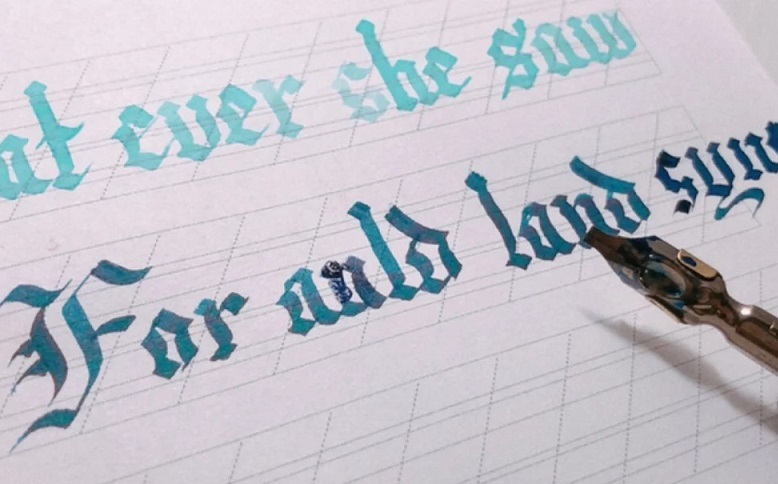 at ever she saw
For auld land syn